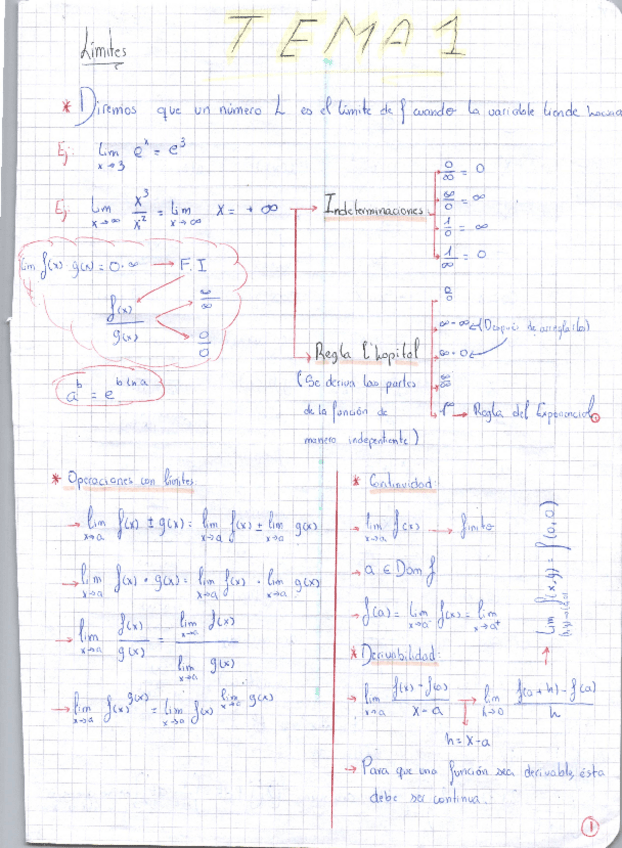 TEMA 1
Límites
* Diremos que un número L es el límite de f cuando la variable tiende hacia
Ej: lim x→3 e^x = e^3
Ej: lim x→∞ x^3/x^2 = lim x→∞ x = +∞ → Indeterminaciones
0/∞ = 0
∞/0 = ∞
1/0 = ∞
1/∞ = 0
lim f(x)·g(x) = 0·∞ → F.I
f(x)/g(x)
∞/∞
0/0
a^b = e^(b ln a)
Regla l'hopital
(Se deriva las partes
de la función de
manera indepentiente)
0/0
∞-∞ (Después de arreglarlo)
∞·0
∞/∞
1^∞ → Regla del Exponencial
* Operaciones con límites
→ lim x→a f(x) ± g(x) = lim x→a f(x) ± lim x→a g(x)
→ lim x→a f(x) · g(x) = lim x→a f(x) · lim x→a g(x)
→ lim x→a f(x)/g(x) = lim x→a f(x) / lim x→a g(x)
→ lim x→a f(x)^g(x) = lim x→a f(x)^(lim x→a g(x))
* Continuidad
→ lim x→a f(x) → finito
→ a ∈ Dom f
→ f(a) = lim x→a⁻ f(x) = lim x→a⁺
lim f(x,y) = f(0,0)
* Derivabilidad
→ lim x→a f(x)-f(a)/x-a → lim h→0 f(a+h)-f(a)/h
h = x-a
→ Para que una función sea derivable, ésta
debe ser continua.
1